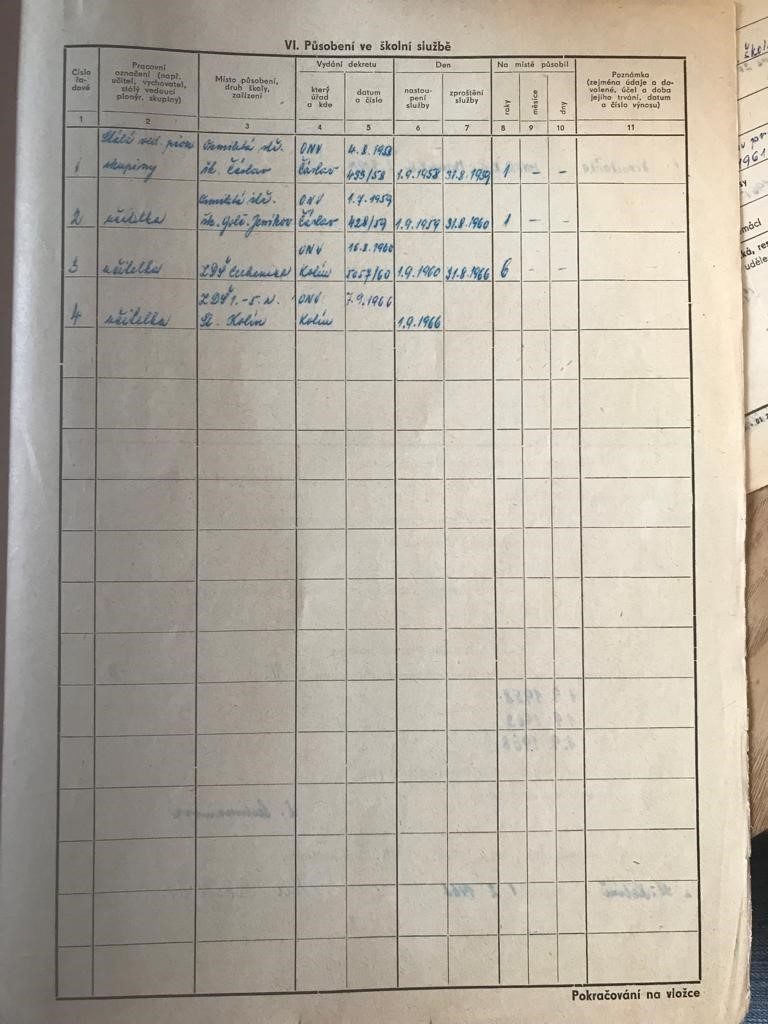 VI. Působení ve školní službě
Číslo řa-
dové
Pracovní
označení (např.
učitel, vychovatel,
stálý vedoucí
pionýr. skupiny)
Místo působení,
druh školy,
zařízení
Vydání dekretu
který
úřad
a kde
datum
a číslo
Den
nastou-
pení
služby
zproštění
služby
Na místě působil
roky
měsíce
dny
Poznámka
(zejména údaje o do-
volené, účel a doba
jejího trvání, datum
a číslo výnosu)
1 2 3 4 5 6 7 8 9 10 11
Stálá ved. pion. Osmiletá stř. ONV 4.8.1958
1 skupiny šk. Čáslav Čáslav 433/58 1.9.1958 31.8.1959 1 – –
Osmiletá stř. ONV 1.7.1959
2 učitelka šk. Golč. Jeníkov Čáslav 428/59 1.9.1959 31.8.1960 1 – –
ONV 16.8.1960
3 učitelka ZDŠ Kolín 5057/60 1.9.1960 31.8.1966 6 – –
ZDŠ 1.–5. ONV 7.9.1966
4 učitelka St. Kolín Kolín 1.9.1966
Pokračování na vložce